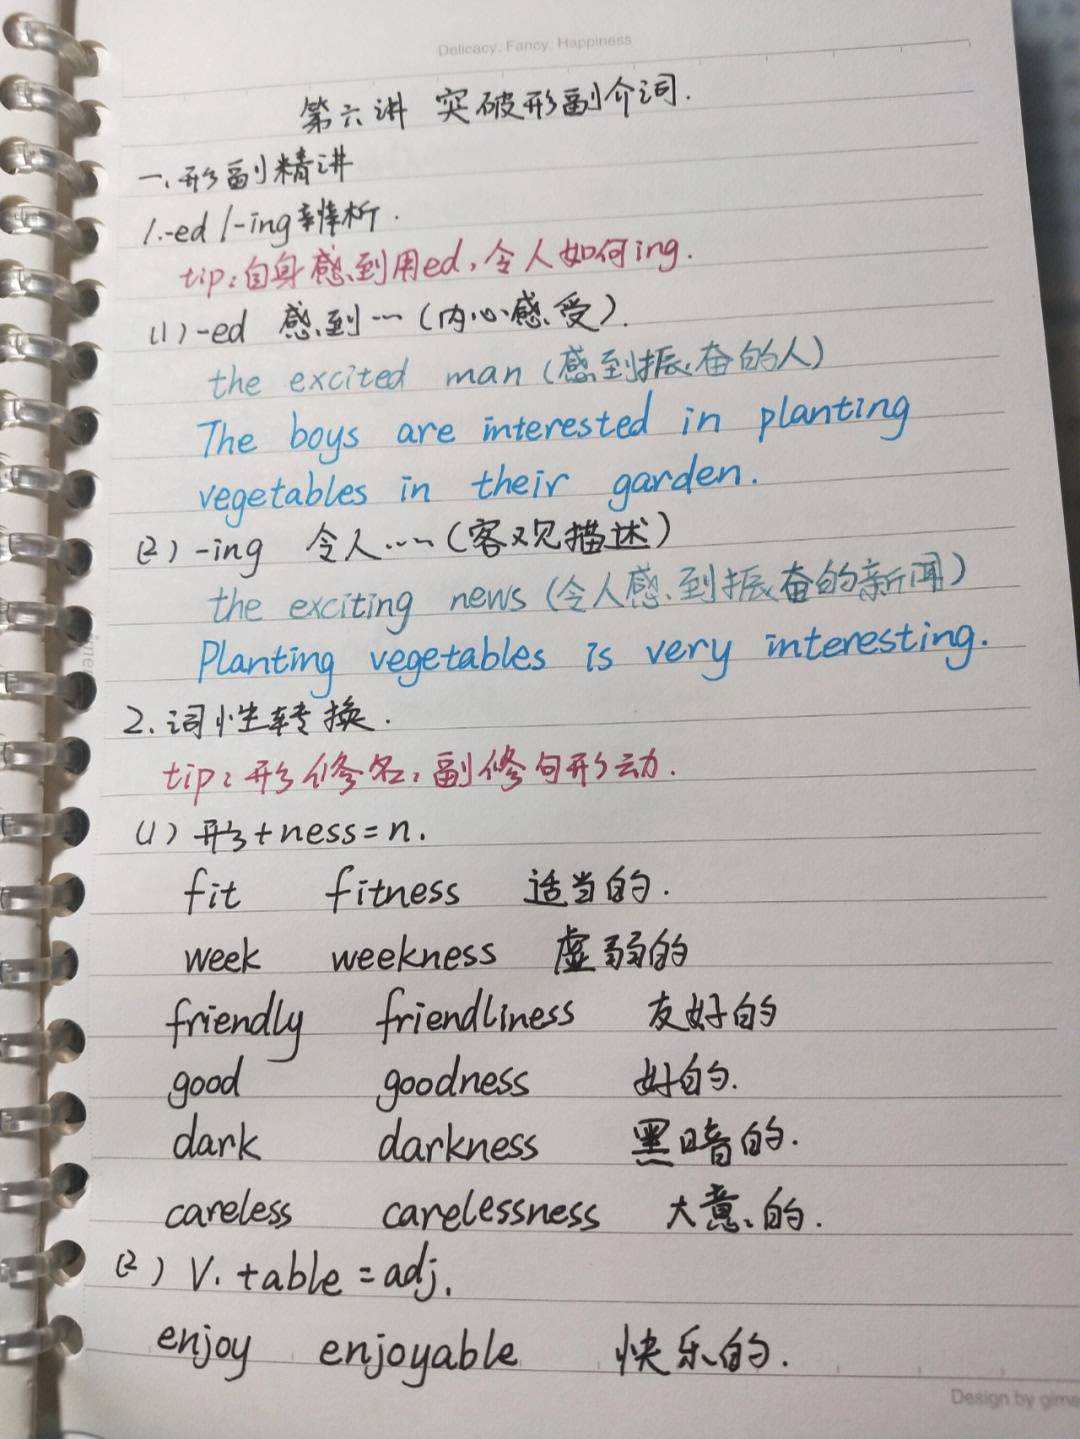 Delicacy. Fancy. Happiness
第六讲 突破形副介词.
一.形副精讲
1.-ed/-ing辨析.
tip:自身感到用ed,令人如何ing.
(1)-ed 感到…(内心感受).
the excited man(感到振奋的人)
The boys are interested in planting
vegetables in their garden.
(2)-ing 令人……(客观描述)
the exciting news(令人感到振奋的新闻)
Planting vegetables is very interesting.
2.词性转换.
tip:形修名;副修句形动.
(1)形+ness=n.
fit fitness 适当的.
week weekness 虚弱的
friendly friendliness 友好的
good goodness 好的.
dark darkness 黑暗的.
careless carelessness 大意的.
(2) V.+able=adj.
enjoy enjoyable 快乐的.
Design by gime